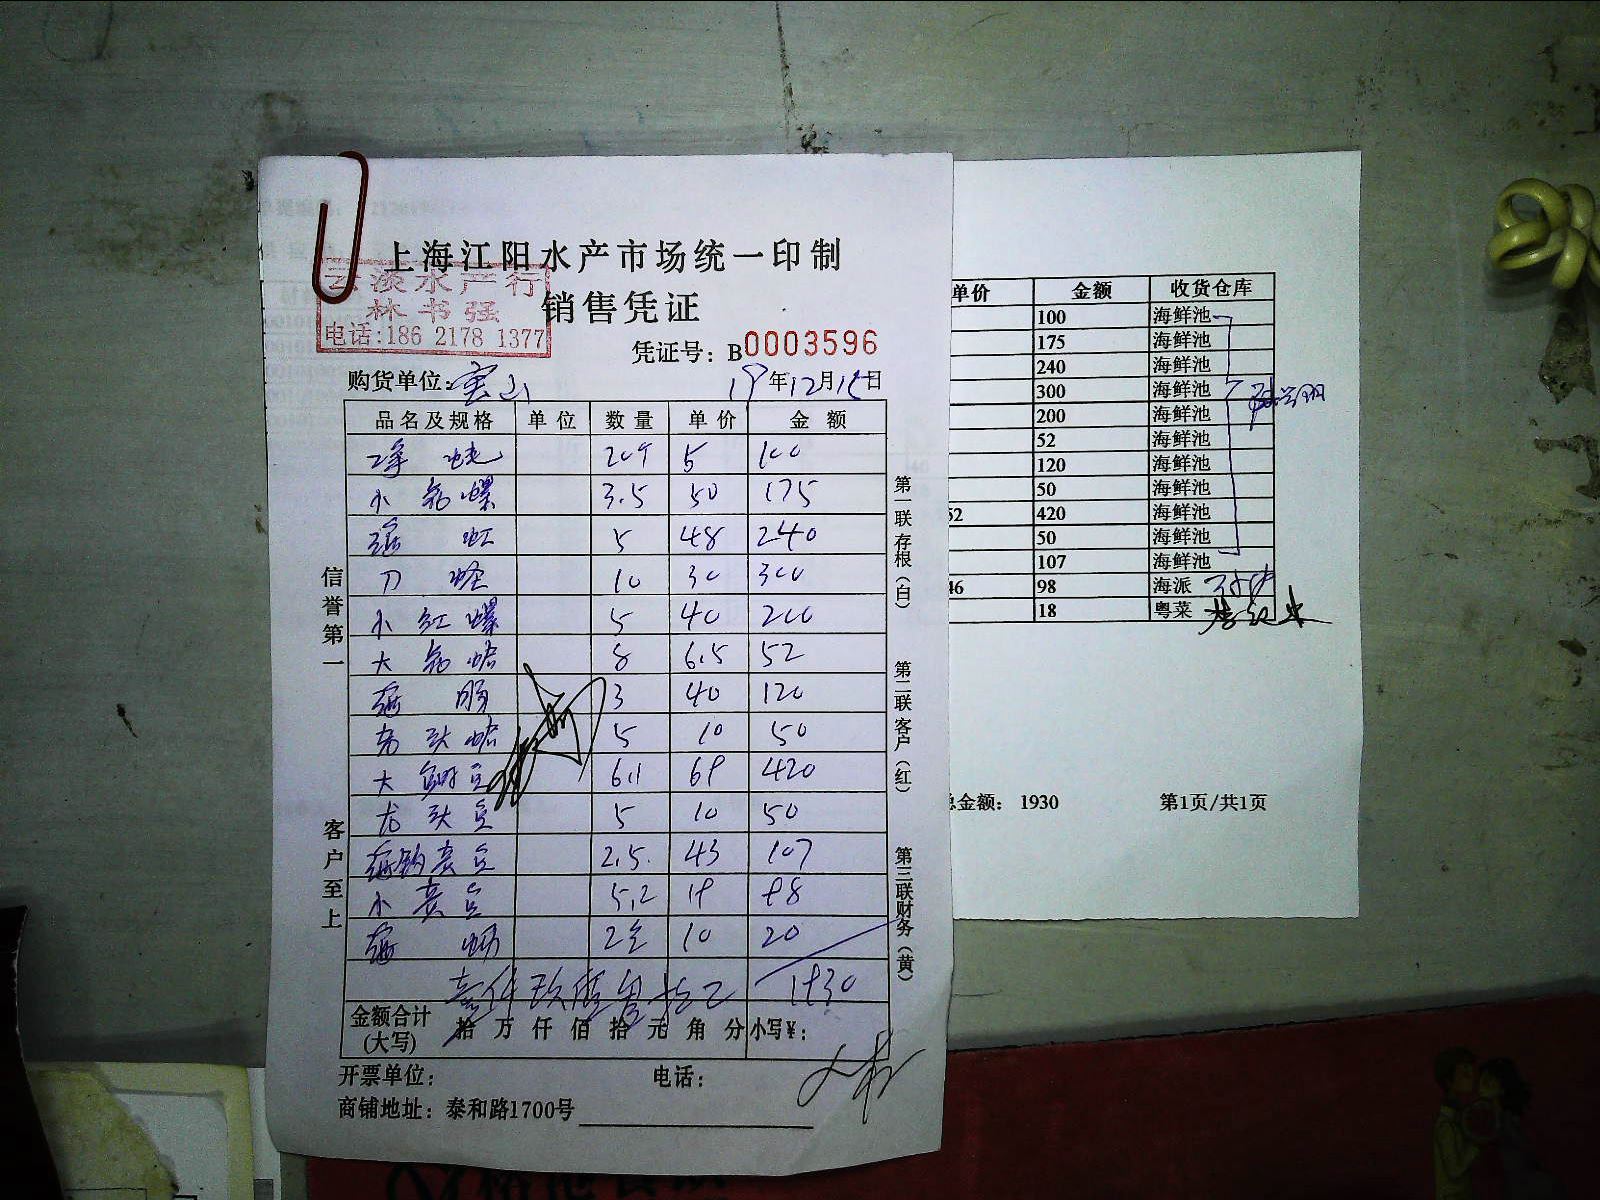 上海江阳水产市场统一印制
云淡水产行
林书强
电话:186 2178 1377
销售凭证
凭证号: B0003596
购货单位: 宝山 19年12月15日
品名及规格 单位 数量 单价 金额
5 100
小 螺 3.5 50 175
虾 5 48 240
刀 蛏 10 30 300
小 红 螺 5 40 200
大 蛤 8 6.5 52
3 40 120
蛤 5 10 50
大 6.1 69 420
龙 头 5 10 50
2.5 43 107
小 黄 5.2 19 98
10 20
壹仟玖佰 1930
金额合计(大写) 拾 万 仟 佰 拾 元 角 分 小写¥:
开票单位: 电话:
商铺地址: 泰和路1700号
信誉第一
客户至上
第一联存根(白)
第二联客户(红)
第三联财务(黄)
单价 金额 收货仓库
100 海鲜池
175 海鲜池
240 海鲜池
300 海鲜池
200 海鲜池
52 海鲜池
120 海鲜池
50 海鲜池
52 420 海鲜池
50 海鲜池
107 海鲜池
46 98 海派
18 粤菜
总金额: 1930 第1页/共1页